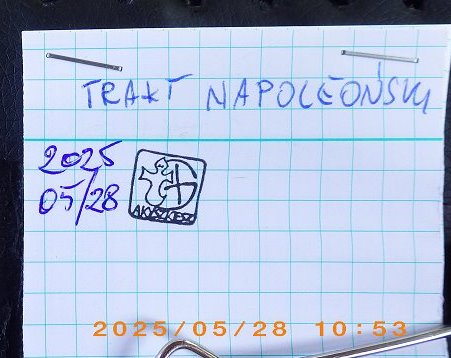 TRAKT NAPOLEOŃSKI
2025
05/28
AKYSZKESZ
2025/05/28 10:53